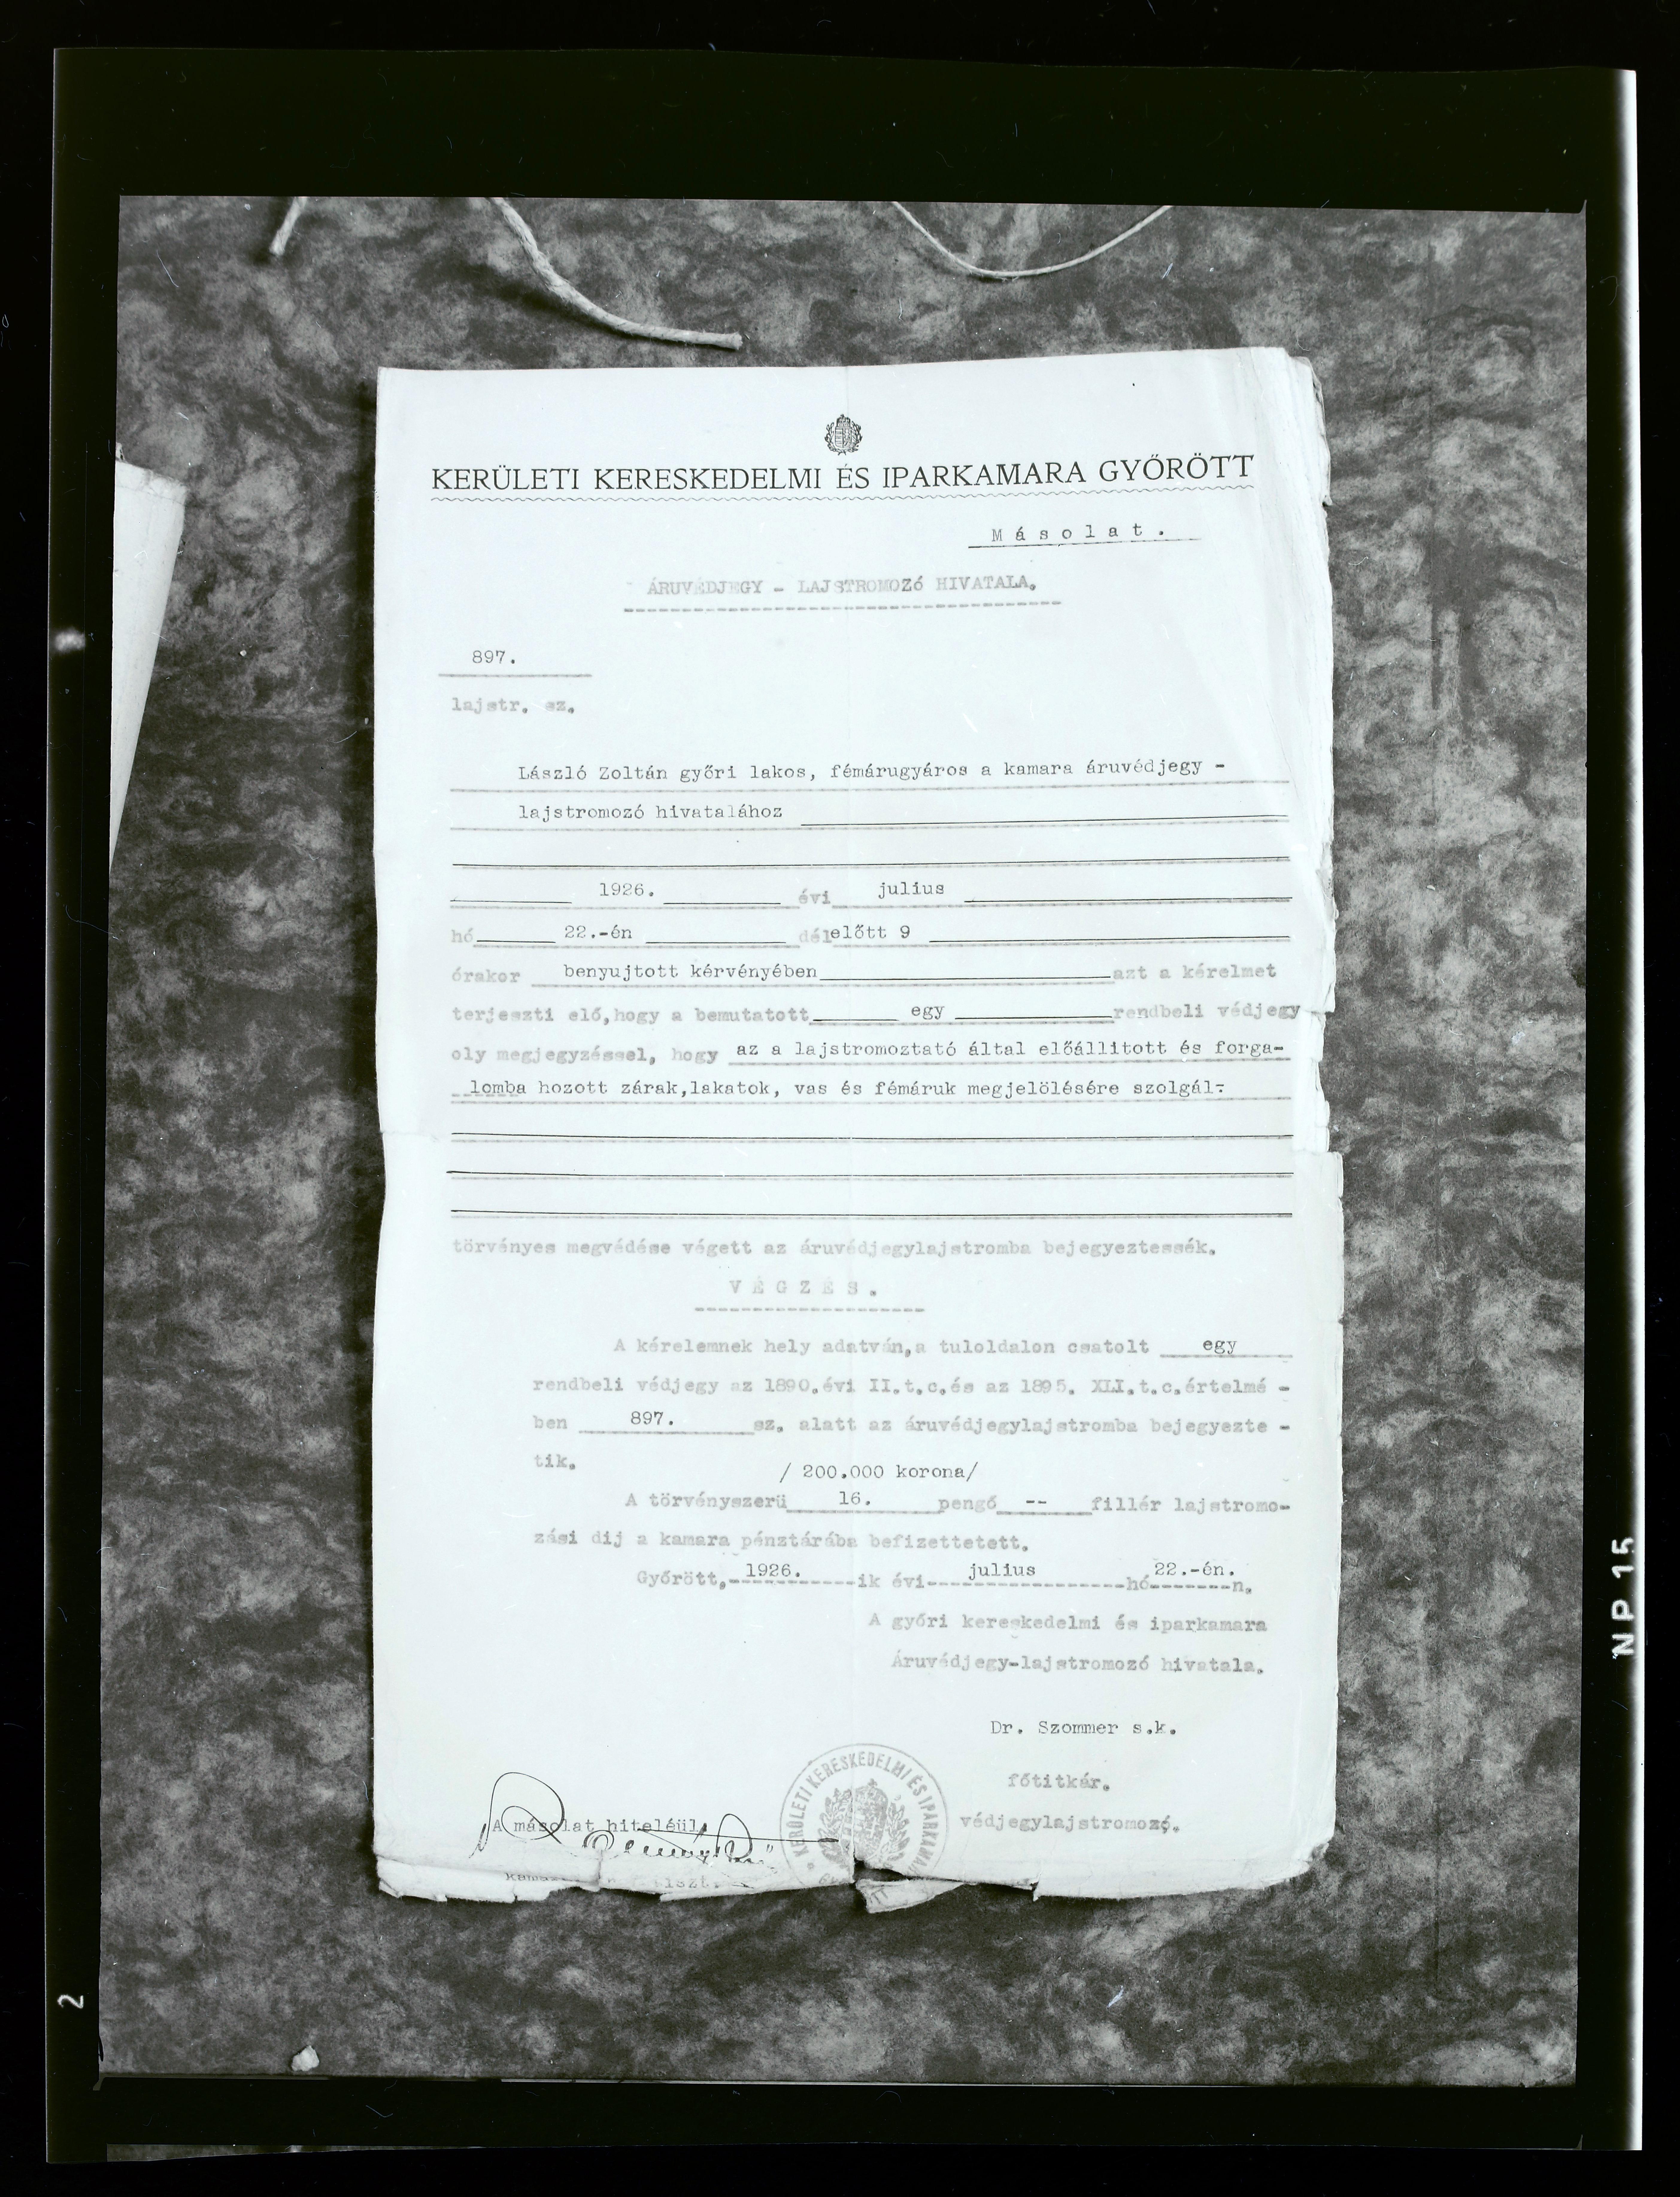 KERÜLETI KERESKEDELMI ÉS IPARKAMARA GYŐRÖTT
Másolat.
ÁRUVÉDJEGY - LAJSTROMOZó HIVATALA.
897.
lajstr. sz.
László Zoltán győri lakos, fémárugyáros a kamara áruvédjegy -
lajstromozó hivatalához
1926. évi julius
hó 22.-én délelőtt 9
órakor benyujtott kérvényében azt a kérelmet
terjeszti elő,hogy a bemutatott egy rendbeli védjegy
oly megjegyzéssel, hogy az a lajstromoztató által előállitott és forga-
lomba hozott zárak,lakatok, vas és fémáruk megjelölésére szolgál-
törvényes megvédése végett az áruvédjegylajstromba bejegyeztessék.
VÉGZÉS.
A kérelemnek hely adatván,a tuloldalon csatolt egy
rendbeli védjegy az 1890.évi II.t.c.és az 1895. XLI.t.c.értelmé -
ben 897. sz. alatt az áruvédjegylajstromba bejegyezte -
tik.
/ 200.000 korona/
A törvényszerü 16. pengő -- fillér lajstromo-
zási dij a kamara pénztárába befizettetett.
Győrött, 1926. ik évi julius hó 22.-én. n.
A győri kereskedelmi és iparkamara
Áruvédjegy-lajstromozó hivatala.
Dr. Szommer s.k.
főtitkár.
védjegylajstromozó.
A másolat hiteléül,
KERÜLETI KERESKEDELMI ÉS IPARKAMARA
NP 15
2